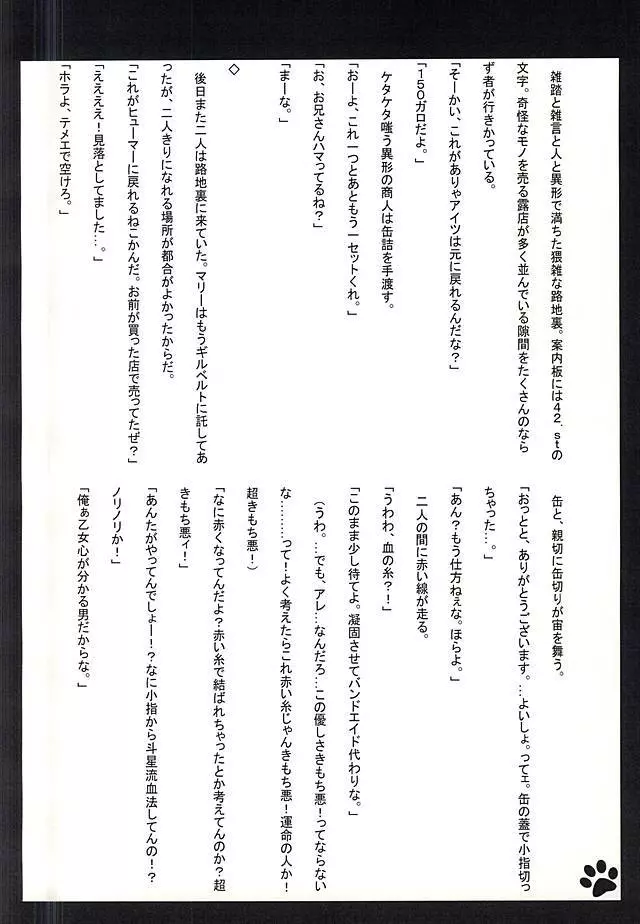 雑踏と雑言と人と異形で満ちた猥雑な路地裏。案内板には４２.ｓｔの
文字。奇怪なモノを売る露店が多く並んでいる隙間をたくさんのなら
ず者が行きかっている。
「そーかい、これがありゃアイツは元に戻れるんだな？」
「１５０ガロだよ。」
ケタケタ嗤う異形の商人は缶詰を手渡す。
「おーよ、これ一つとあともう一セットくれ。」
「お、お兄さんハマってるね？」
「まーな。」
◇
後日また二人は路地裏に来ていた。マリーはもうギルベルトに託してあ
ったが、二人きりになれる場所が都合がよかったからだ。
「これがヒューマーに戻れるねこかんだ。お前が買った店で売ってたぜ？」
「ええええ！見落としてました…。」
「ホラよ、テメエで空けろ。」
缶と、親切に缶切りが宙を舞う。
「おっとと、ありがとうございます。…よいしょ。ってェ。缶の蓋で小指切っ
ちゃった…。」
「あん？もう仕方ねぇな。ほらよ。」
二人の間に赤い線が走る。
「うわわ、血の糸？！」
「このまま少し待てよ。凝固させてバンドエイド代わりな。」
（うわ。…でも、アレ…なんだろ…この優しさきもち悪！ってならない
な………って！よく考えたらこれ赤い糸じゃんきもち悪！運命の人か！
超きもち悪！）
「なに赤くなってんだよ？赤い糸で結ばれちゃったとか考えてんのか？超
きもち悪ィ！」
「あんたがやってんでしょー！？なに小指から斗星流血法してんの！？
ノリノリか！」
「俺ぁ乙女心が分かる男だからな。」